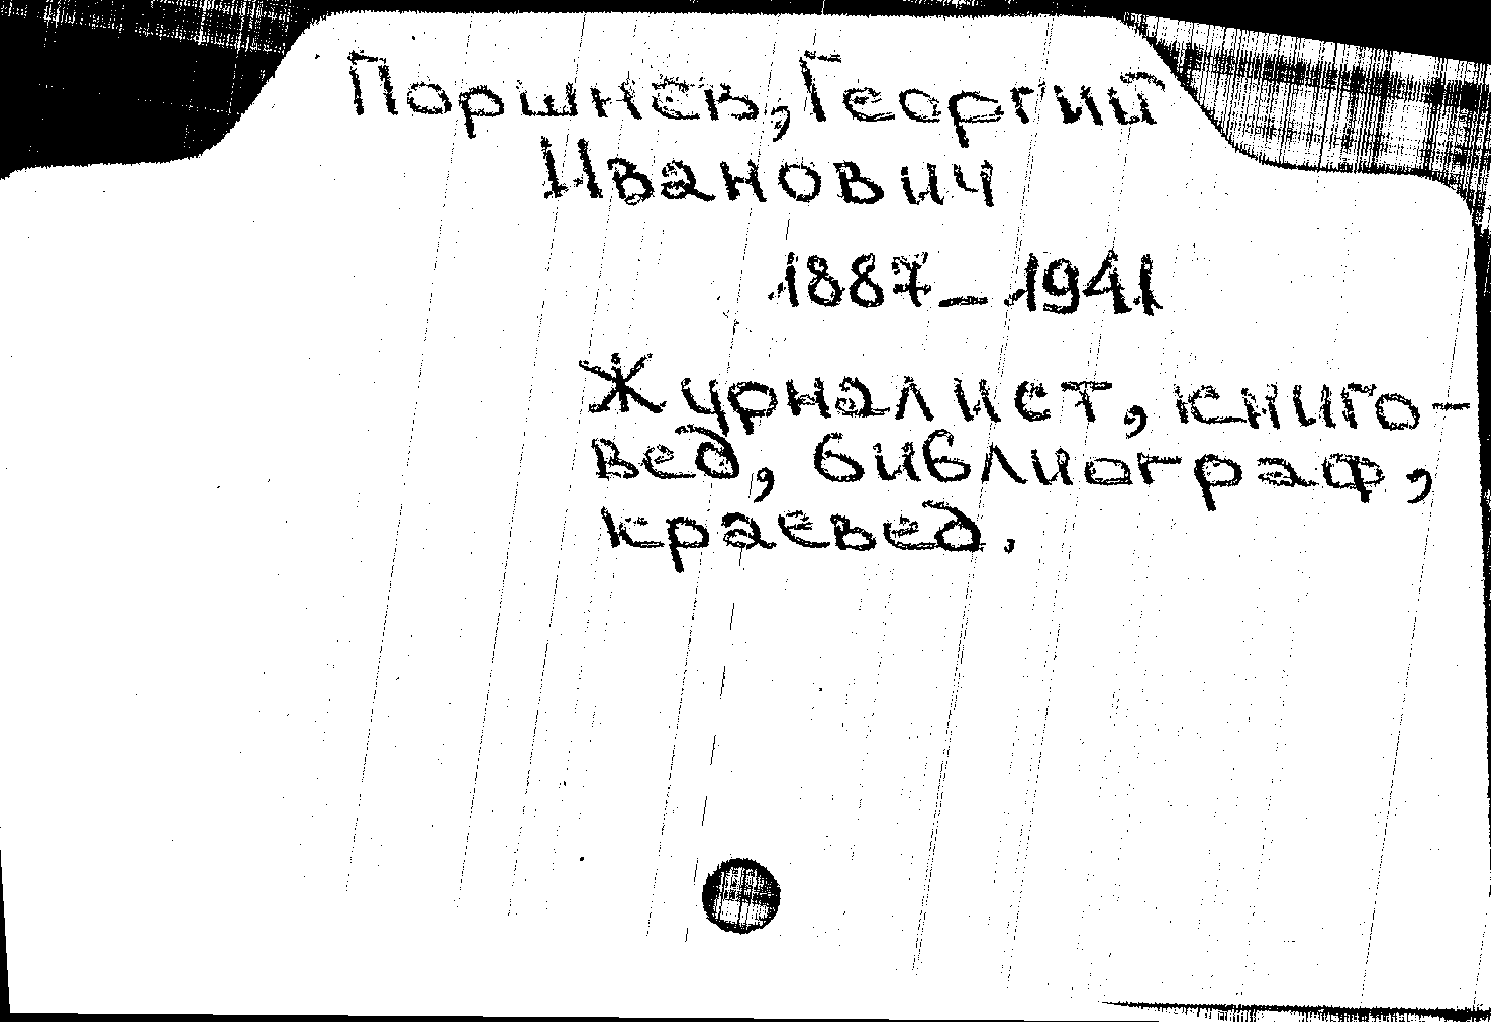 Поршнев, Георгий
Иванович
1887–1941
Журналист, книго-
вед, библиограф,
краевед.